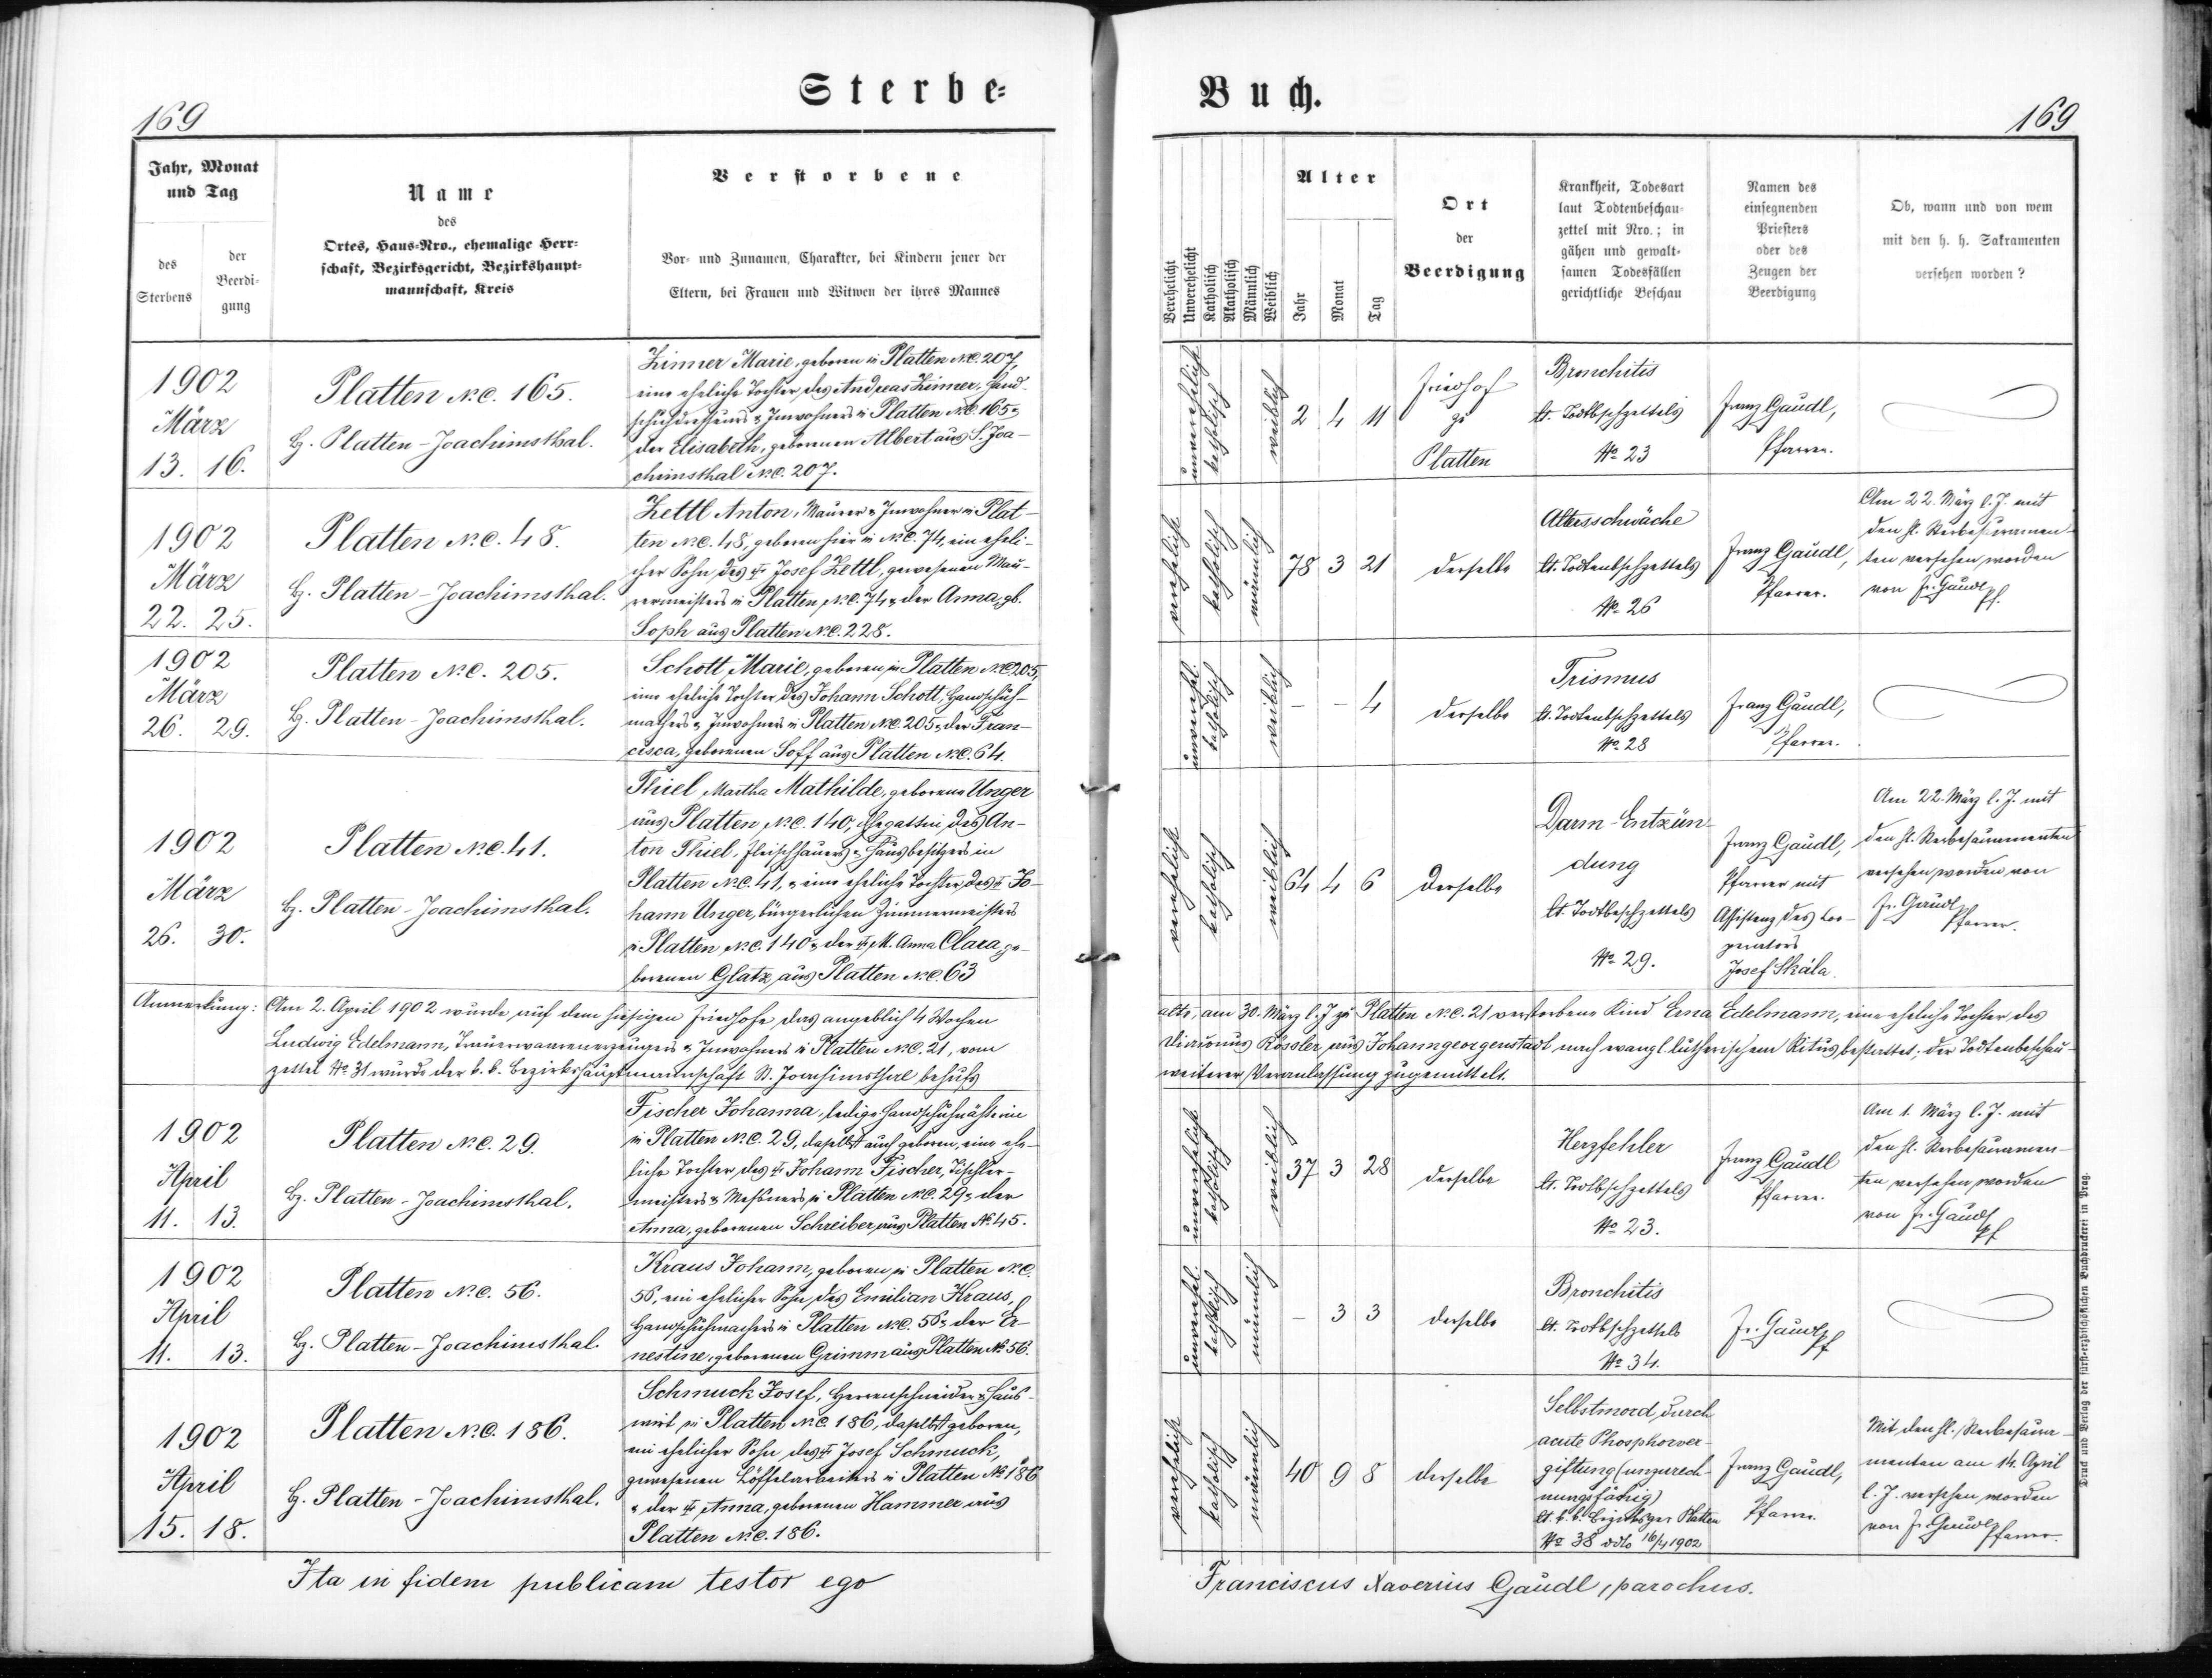 Sterbe-
169
Jahr, Monat
und Tag
des
Sterbens
der
Beerdi-
gung
Name
des
Ortes, Haus-Nro., ehemalige Herr-
schaft, Bezirksgericht, Bezirkshaupt-
mannschaft, Kreis
Verstorbene
Vor- und Zunamen, Charakter, bei Kindern jener der
Eltern, bei Frauen und Witwen der ihres Mannes
1902
März
13. 16.
Platten N.C. 165.
Bz. Platten-Joachimsthal.
Zinner Marie, geboren in Platten N.C. 207,
eine eheliche Tochter des Andreas Zinner, Hand-
schuhdresseurs & Inwohners in Platten N.C. 165 &
der Elisabeth, geborenen Albert aus S. Joa-
chimsthal N.C. 207.
1902
März
22. 25.
Platten N.C. 48.
Bz. Platten-Joachimsthal.
Zettl Anton, Maurer & Inwohner in Plat-
ten N.C. 48, geboren hier in N.C. 74, ein eheli-
cher Sohn des † Josef Zettl, gewesenen Mau-
rermeisters in Platten N.C. 74 & der Anna, gb.
Soph aus Platten N.C. 228.
1902
März
26. 29.
Platten N.C. 205.
Bz. Platten-Joachimsthal.
Schott Marie, geboren in Platten N.C. 205,
eine eheliche Tochter des Johann Schott, Handschuh-
machers & Inwohners in Platten N.C. 205 & der Fran-
cisca, geborenen Soff aus Platten N.C. 64.
1902
März
26. 30.
Platten N.C. 41.
Bz. Platten-Joachimsthal.
Thiel Martha Mathilde, geborene Unger
aus Platten N.C. 140, Ehegattin des An-
ton Thiel, Fleischhauers & Hausbesitzers in
Platten N.C. 41, & eine eheliche Tochter des † Jo-
hann Unger, bürgerlichen Zimmermeisters
in Platten N.C. 140 & der † M. Anna Clara ge-
borenen Glatz aus Platten N.C. 63
Anmerkung: Am 2. April 1902 wurde auf dem hiesigen Friedhofe das angeblich 4 Wochen
Ludwig Edelmann, Trauerwaarenerzeugers & Inwohners in Platten N.C. 21, vom
zettel No 31 wurde der k. k. Bezirkshauptmannschaft St. Joachimsthal behufs
1902
April
11. 13.
Platten N.C. 29.
Bz. Platten-Joachimsthal.
Fischer Johanna, ledige Handschuhnähterin
in Platten N.C. 29, daselbst auch geboren, eine ehe-
liche Tochter des † Johann Fischer, Tischler-
meisters & Messners in Platten N.C. 29 & der
Anna, geborenen Schreiber aus Platten No 45.
1902
April
11. 13.
Platten N.C. 56.
Bz. Platten-Joachimsthal.
Kraus Johann, geboren in Platten N.C.
56, ein ehelicher Sohn des Emilian Kraus,
Handschuhmachers in Platten N.C. 56 & der Er-
nestine, geborenen Grimm aus Platten No 56.
1902
April
15. 18.
Platten N.C. 186.
Bz. Platten-Joachimsthal.
Schmuck Josef, Herrenschneider & Haus-
wirt in Platten N.C. 186, daselbst geboren,
ein ehelicher Sohn des † Josef Schmuck,
gewesenen Löffelarbeiters in Platten No 186
& der † Anna, geborenen Hammer aus
Platten N.C. 186.
Ita in fidem publicam testor ego
Buch.
169
Verehelicht
Unverehelicht
Katholisch
Akatholisch
Männlich
Weiblich
Alter
Jahr
Monat
Tag
Ort
der
Beerdigung
Krankheit, Todesart
laut Todtenbeschau-
zettel mit Nro.; in
gähen und gewalt-
samen Todesfällen
gerichtliche Beschau
Namen des
einsegnenden
Priesters
oder des
Zeugen der
Beerdigung
Ob, wann und von wem
mit den h. h. Sakramenten
versehen worden?
unverehelicht
katholisch
weiblich
2 4 11
Friedhof
zu
Platten
Bronchitis
lt. Todtbschzettels
No 23
Franz Gaudl,
Pfarrer.
verehelicht
katholisch
männlich
78 3 21
derselbe
Altersschwäche
lt. Todtenbschzettels
No 26
Franz Gaudl,
Pfarrer.
Am 22. März l. J. mit
den hl. Sterbesacramen-
ten versehen worden
von Fr. Gaudl Pf.
unverehel.
katholisch
weiblich
- - 4
derselbe
Trismus
lt. Todtenbschzettels
No 28
Franz Gaudl,
Pfarrer.
verehelicht
katholisch
weiblich
64 4 6
derselbe
Darm-Entzün-
dung
lt. Todtbeschzettels
No 29.
Franz Gaudl,
Pfarrer mit
Assistenz des Coo-
perators
Josef Skála.
Am 22. März l. J. mit
den hl. Sterbesacramenten
versehen worden von
Fr. Gaudl
Pfarrer.
alte, am 30. März l. J. zu Platten N.C. 21 verstorbene Kind Erna Edelmann, eine eheliche Tochter des
Diakonus Rössler aus Johanngeorgenstadt nach evangl. lutherischem Ritus bestattet; der Todtenbeschau-
weiterer Veranlassung zugemittelt.
unverehelicht
katholisch
weiblich
37 3 28
derselbe
Herzfehler
lt. Todtbschzettels
No 23.
Franz Gaudl
Pfarrer.
Am 1. März l. J. mit
den hl. Sterbesacramen-
ten versehen worden
von Fr. Gaudl
Pf
unverehel.
katholisch
männlich
- 3 3
derselbe
Bronchitis
lt. Todtbschzettels
No 34.
Fr. Gaudl Pf
verehelicht
katholisch
männlich
40 9 8
derselbe
Selbstmord, durch
acute Phosphorver-
giftung (unzurech-
nungsfähig)
lt. k. k. Bezirksger Platten
No 38 ddto 16/4 1902
Franz Gaudl,
Pfarrer.
Mit den hl. Sterbesacra-
menten am 14. April
l. J. versehen worden
von Fr. Gaudl Pfarrer.
Franciscus Xaverius Gaudl, parochus.
Druck und Verlag der fürst-erzbischöflichen Buchdruckerei in Prag.